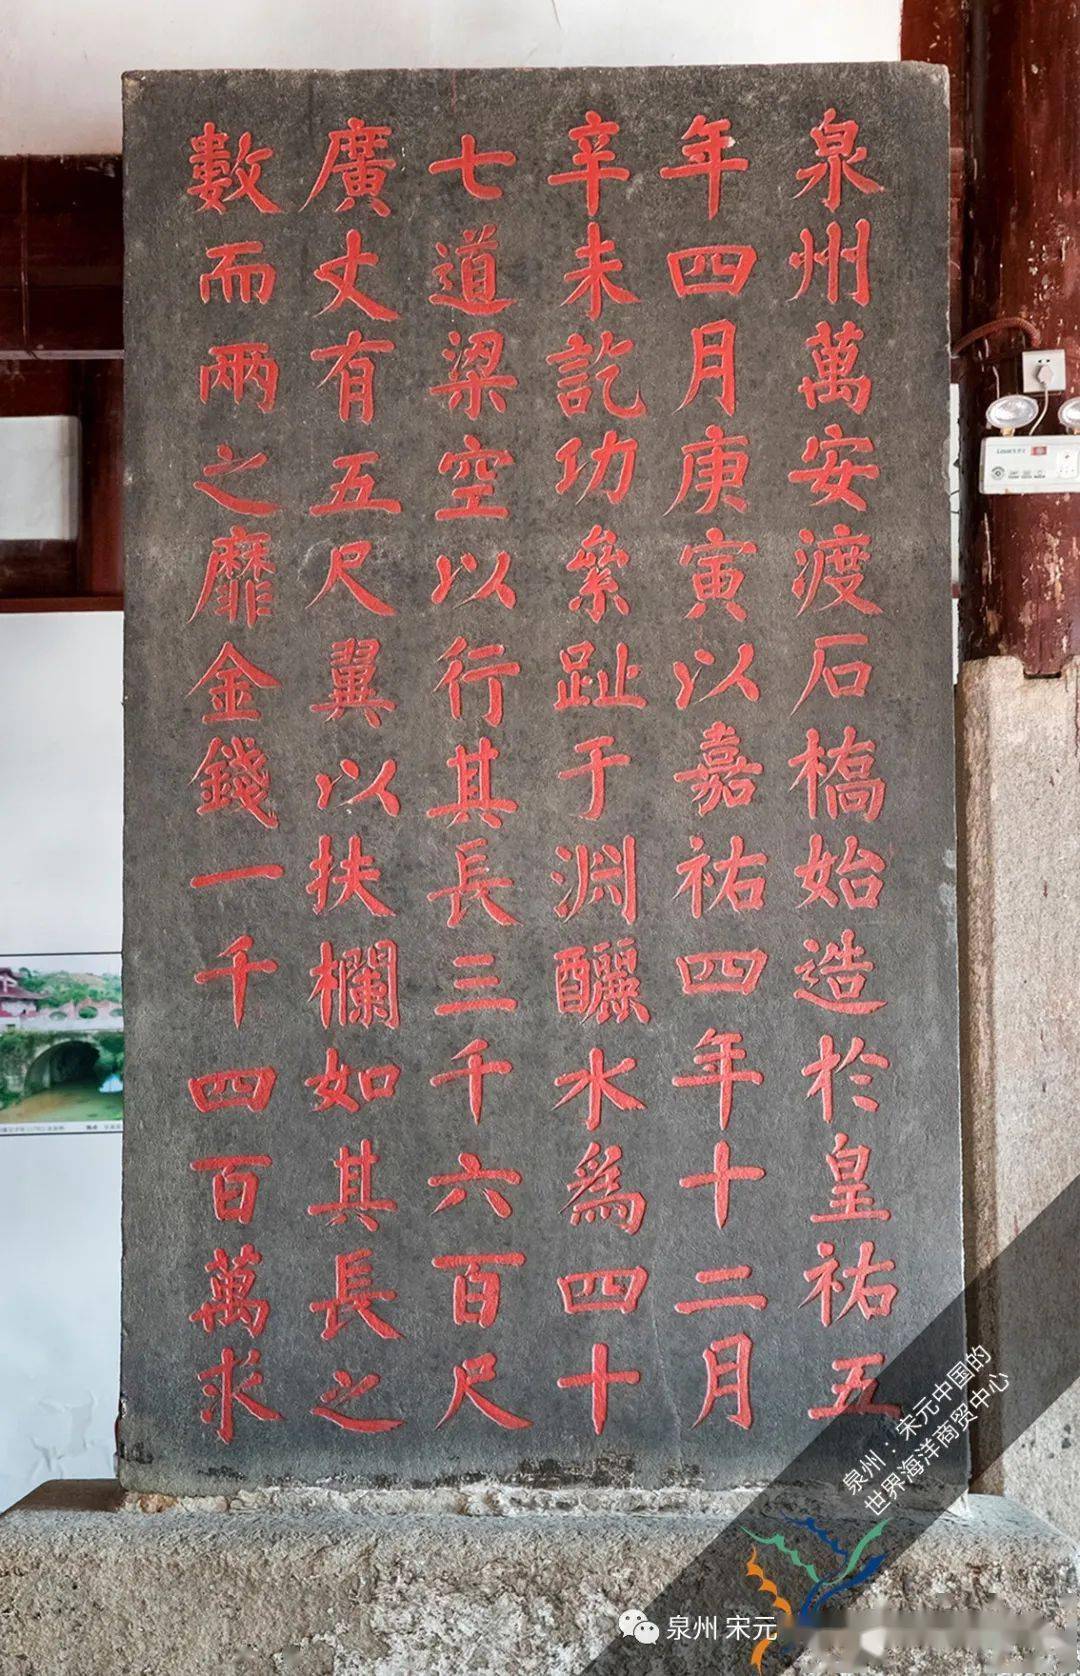 泉州萬安渡石橋始造於皇祐五
年四月庚寅以嘉祐四年十二月
辛未訖功絫趾于渊釃水爲四十
七道梁空以行其長三千六百尺
廣丈有五尺翼以扶欄如其長之
數而兩之靡金錢一千四百萬求
泉州：宋元中国的
世界海洋商贸中心
泉州 宋元